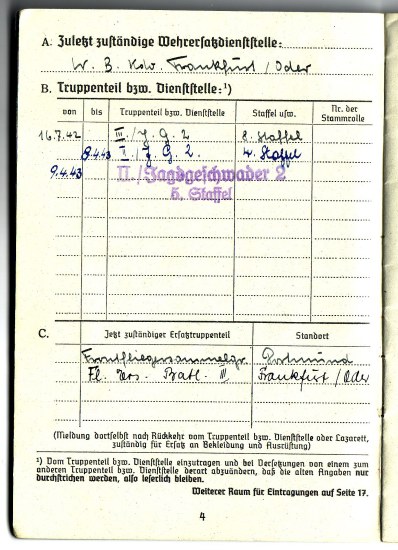 A. Zuletzt zuständige Wehrersatzdienststelle:
W. B. Kdo. Frankfurt / Oder
B. Truppenteil bzw. Dienststelle:¹)
von bis Truppenteil bzw. Dienststelle Staffel usw. Nr. der Stammrolle
16.7.42 III./J. G. 2 8. Staffel
8.4.43 I./J. G. 2. 4. Staffel
9.4.43 II./Jagdgeschwader 2
5. Staffel
C. Jetzt zuständiger Ersatztruppenteil Standort
Frontfliegersammelgr. Dortmund
Fl. Ers. Batl. III Frankfurt / Oder
(Meldung dortselbst nach Rückkehr vom Truppenteil bzw. Dienststelle oder Lazarett,
zuständig für Ersatz an Bekleidung und Ausrüstung)
¹) Vom Truppenteil bzw. Dienststelle einzutragen und bei Versetzungen von einem zum
anderen Truppenteil bzw. Dienststelle derart abzuändern, daß die alten Angaben nur
durchstrichen werden, also leserlich bleiben.
Weiterer Raum für Eintragungen auf Seite 17.
4